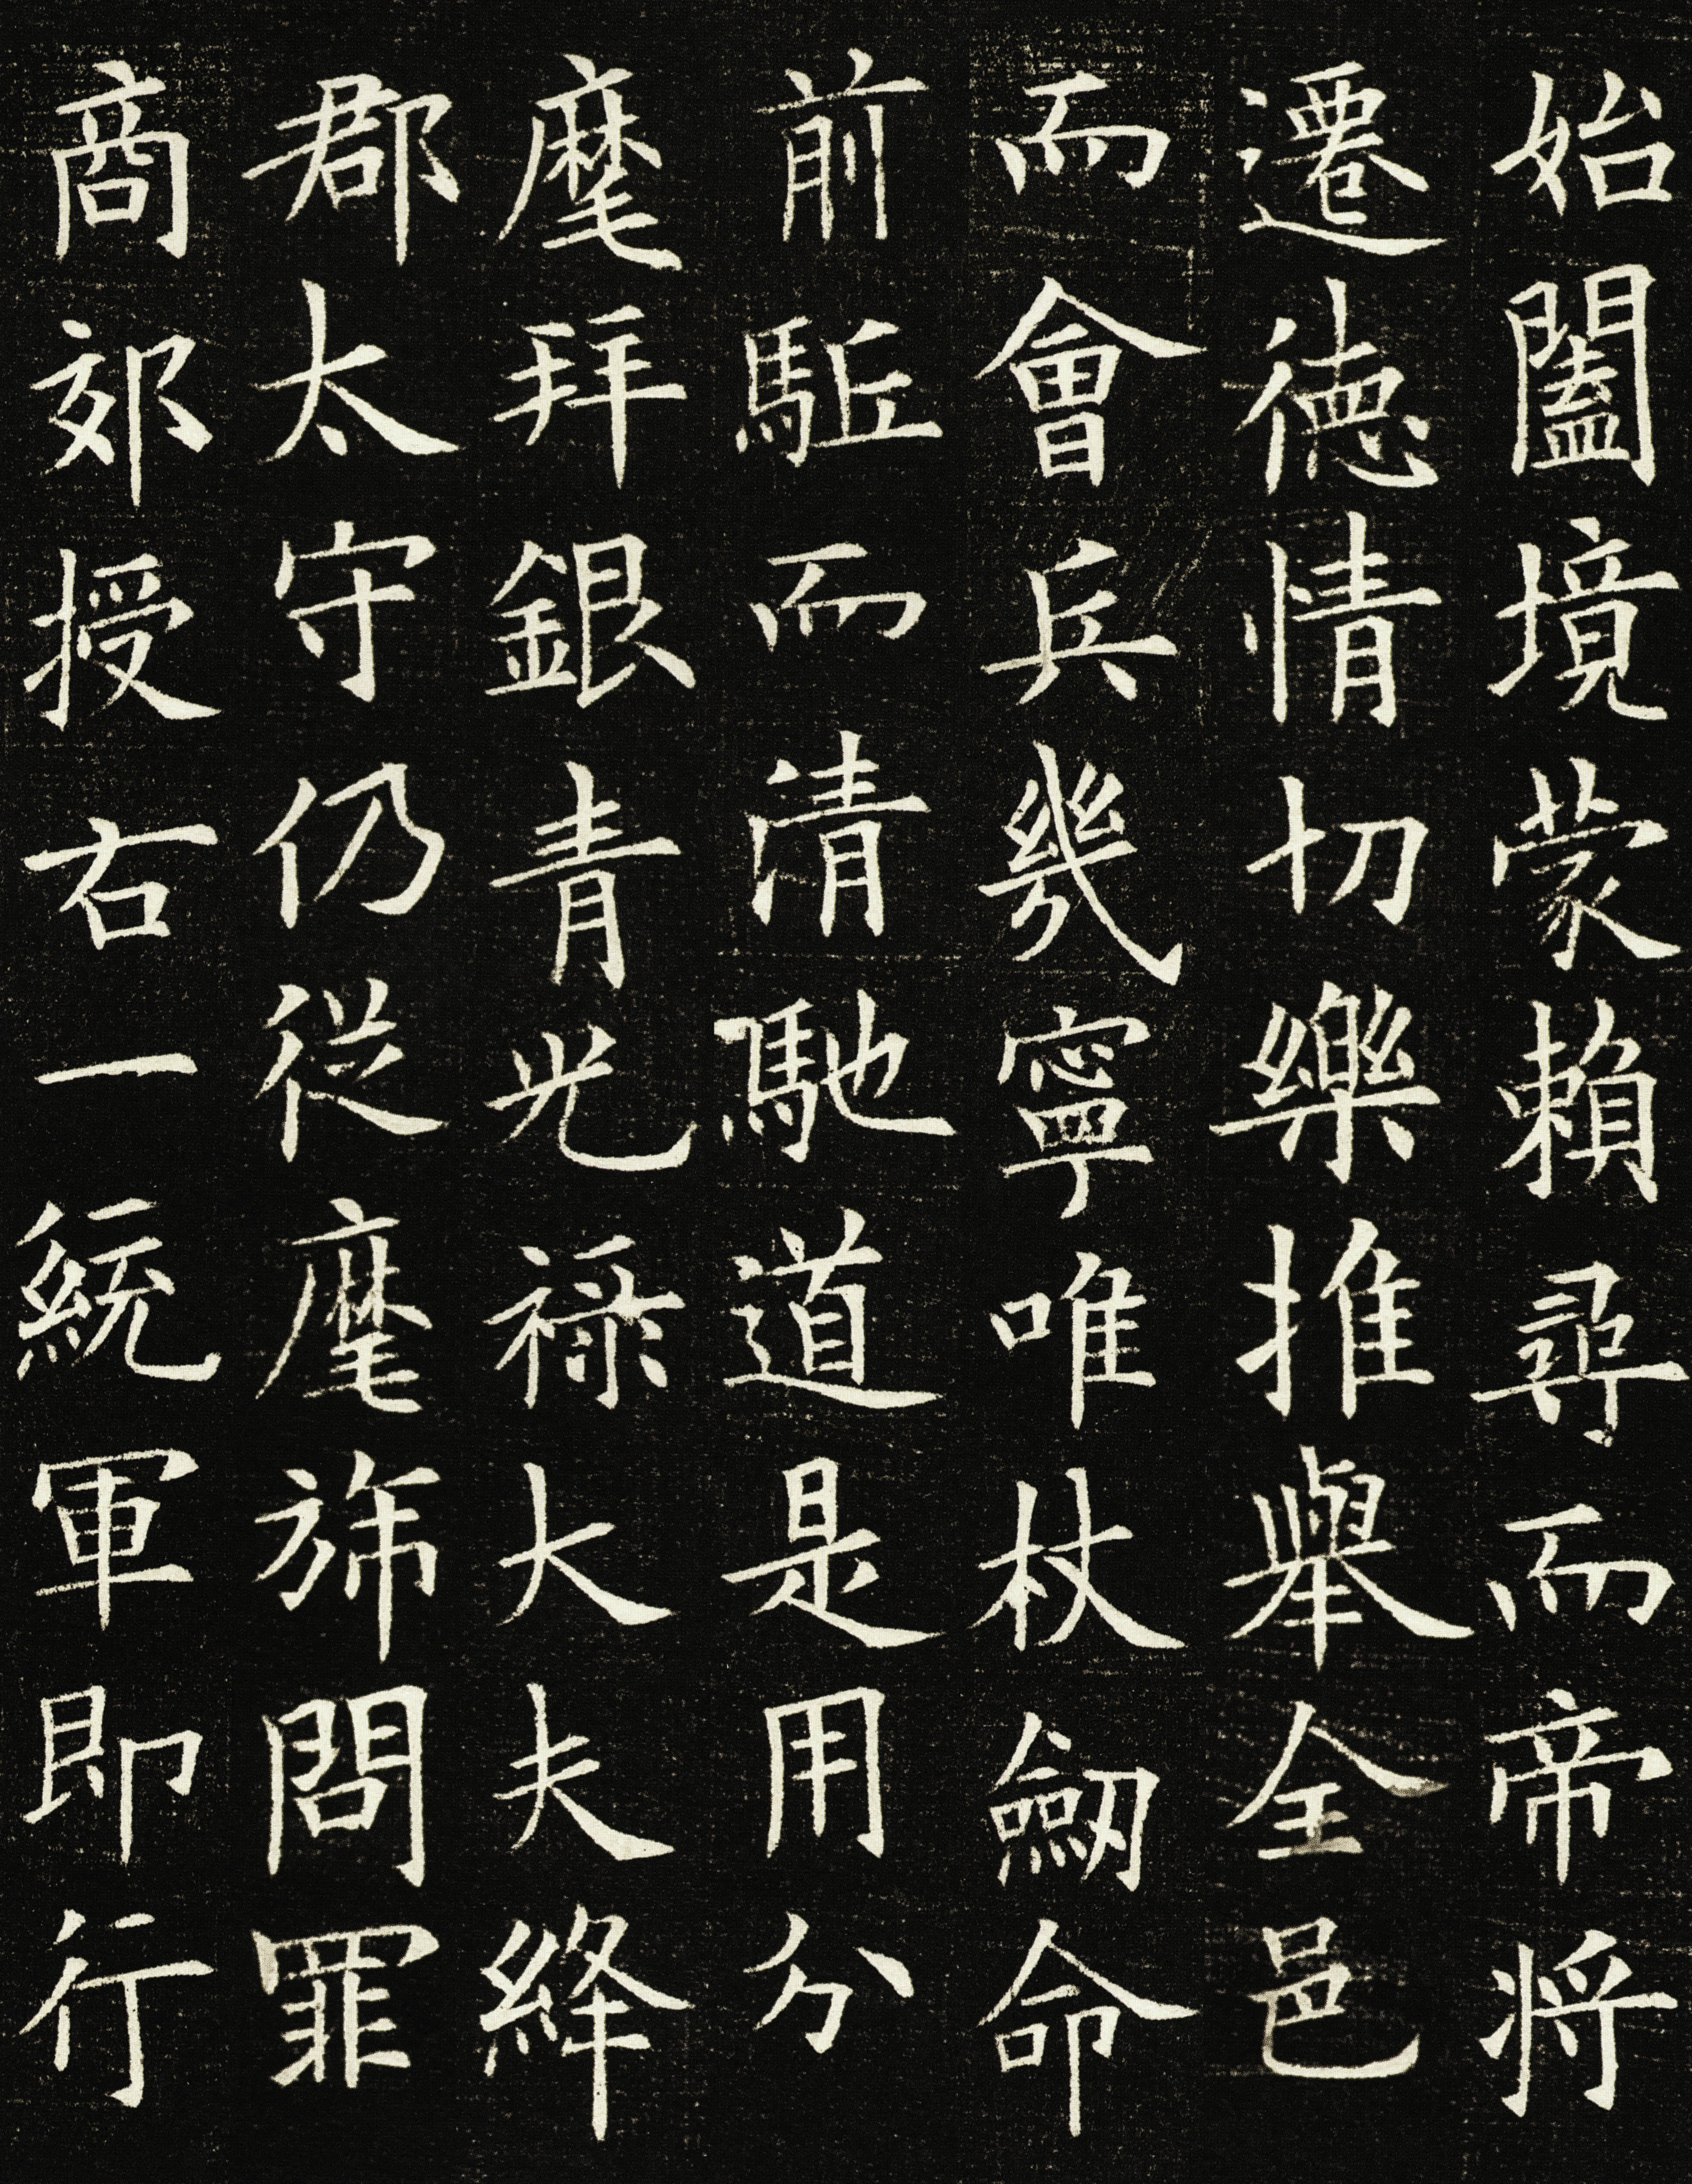 始闔境蒙賴尋而帝将
遷德情切樂推舉全邑
而會兵幾寧唯杖劒命
前駈而清馳道是用分
麾拜銀青光禄大夫絳
郡太守仍從麾旆問罪
商郊授右一統軍即行